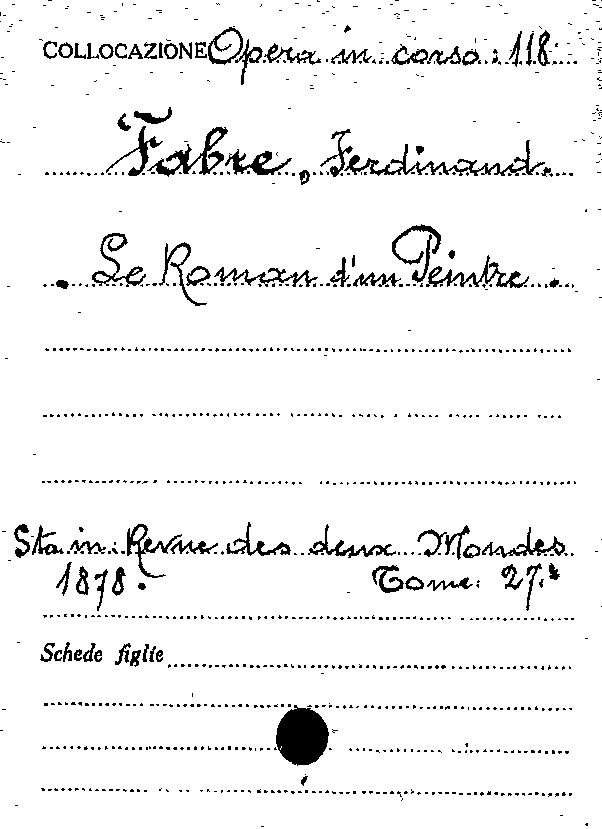 COLLOCAZIONE Opera in corso: 118
Fabre, Ferdinand.
. Le Roman d'un Peintre .
Sta in: Revue des deux Mondes
1878. Tome: 27.
Schede figlie